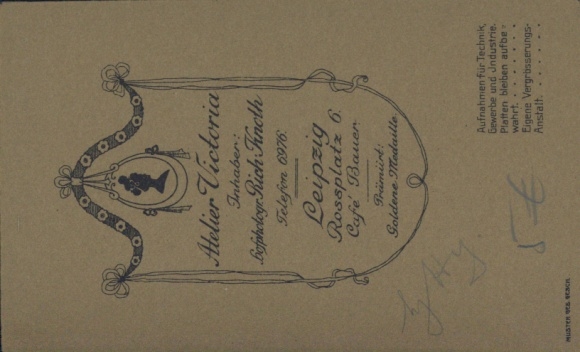 Atelier Victoria
Inhaber:
Hofphotogr. Rich. Knoth
Telefon 6976.
Leipzig
Rossplatz 6.
Café Bauer
Prämiirt:
Goldene Medaille
Aufnahmen für Technik,
Gewerbe und Industrie.
Platten bleiben aufbe-
wahrt. . . . . . .
Eigene Vergrösserungs-
Anstalt. . . . . . .
5 €
MUSTER GES. GESCH.